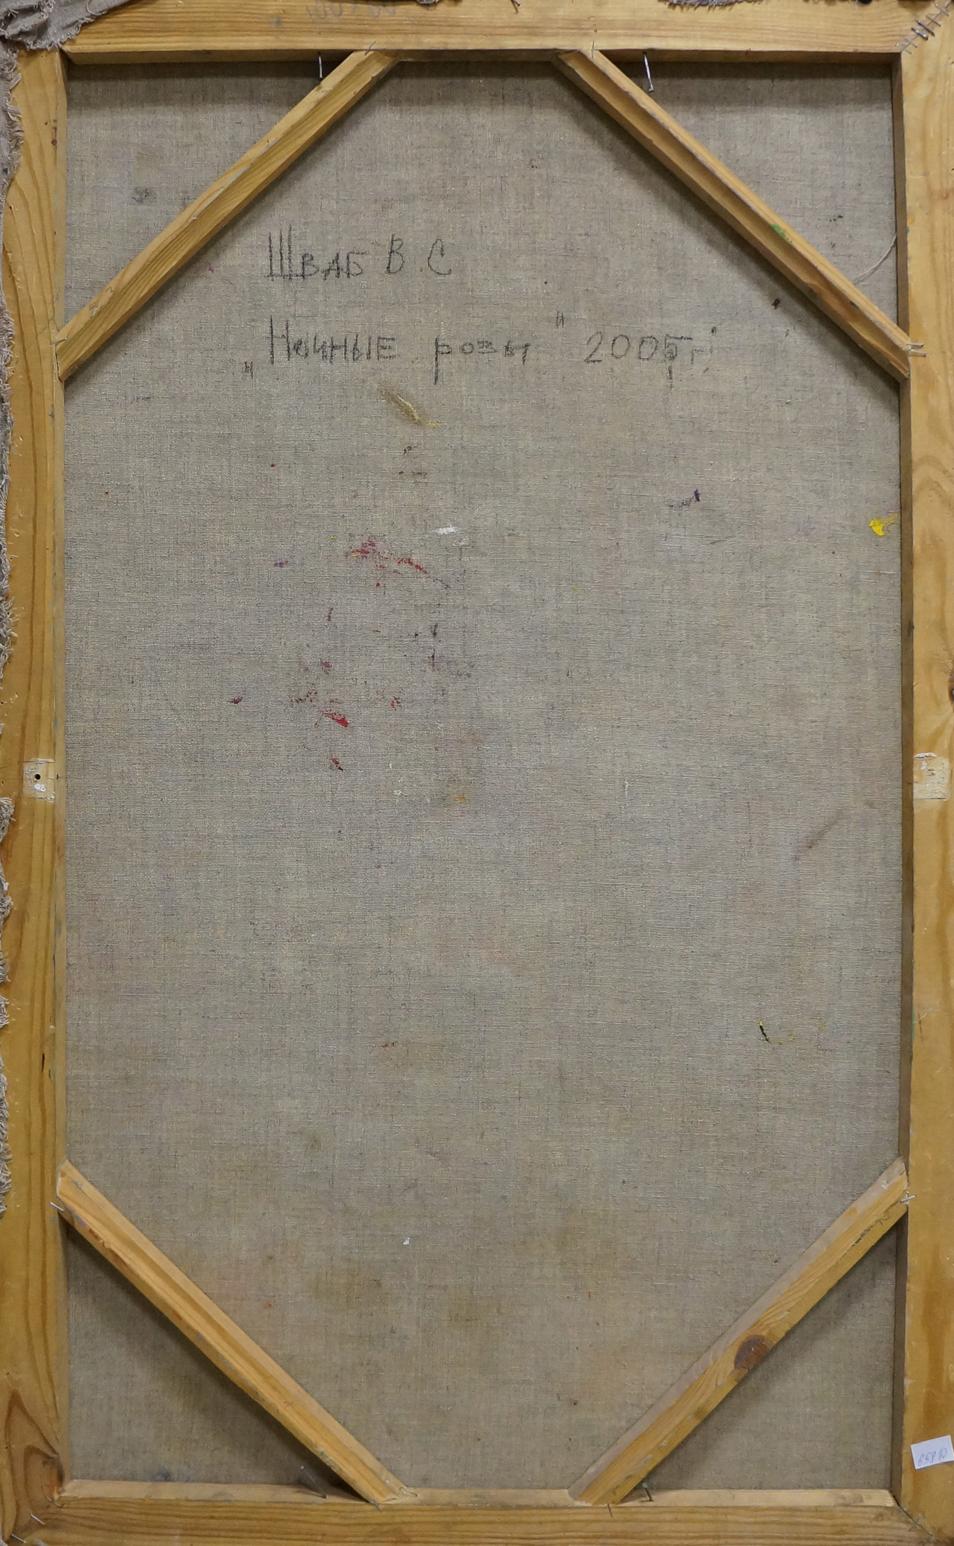 Шваб В.С
„Ночные розы" 2005г.